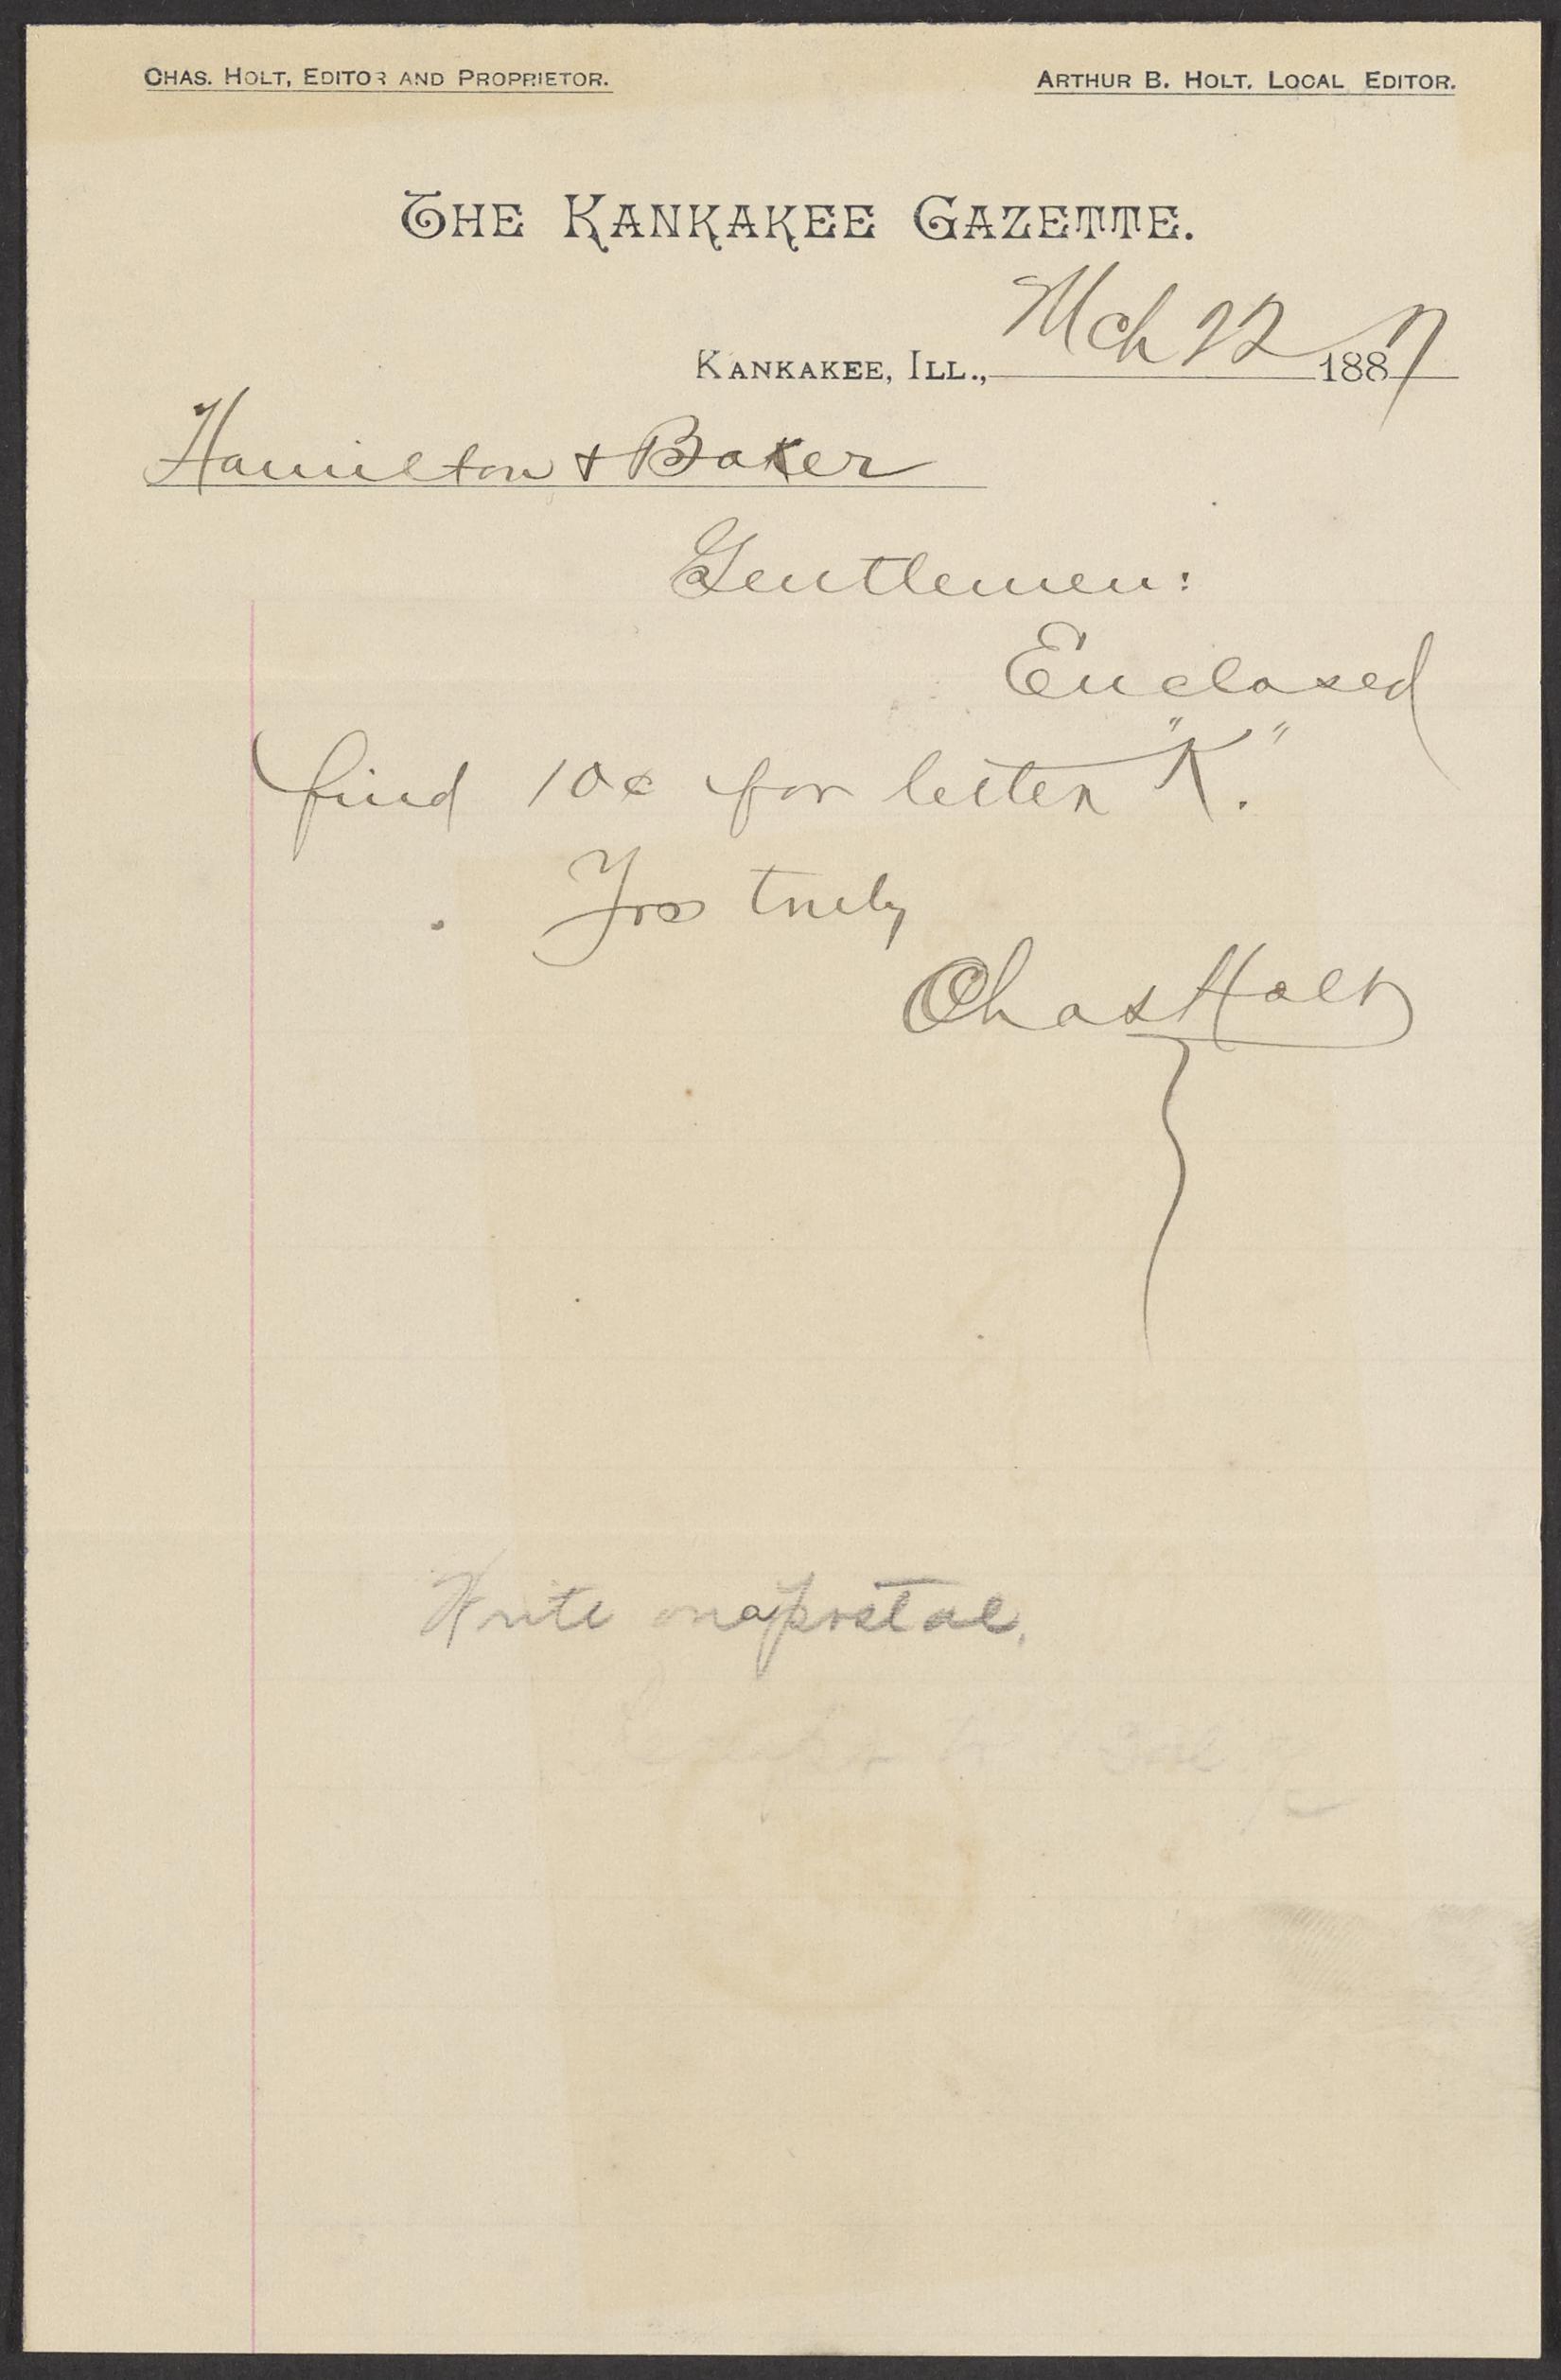 CHAS. HOLT, EDITOR AND PROPRIETOR.
ARTHUR B. HOLT, LOCAL EDITOR.
THE KANKAKEE GAZETTE.
KANKAKEE, ILL., Mch 22 1887
Hamilton + Baker
Gentlemen:
Enclosed
find 10¢ for letter "K".
Yrs truly
Chas Holt
Write on a postal.